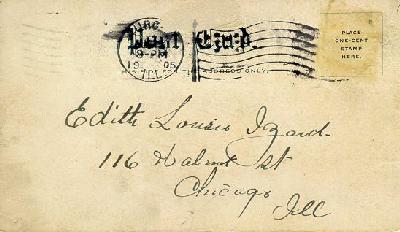 Post Card.
9-PM
PLACE
ONE-CENT
STAMP
HERE.
ADDRESS ONLY.
Edith Louise Izard.
116 Walnut St
Chicago
Ill